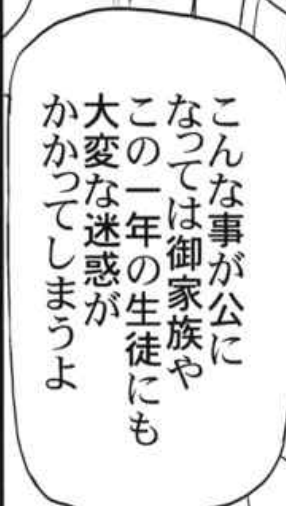 こんな事が公に
なっては御家族や
この一年の生徒にも
大変な迷惑が
かかってしまうよ